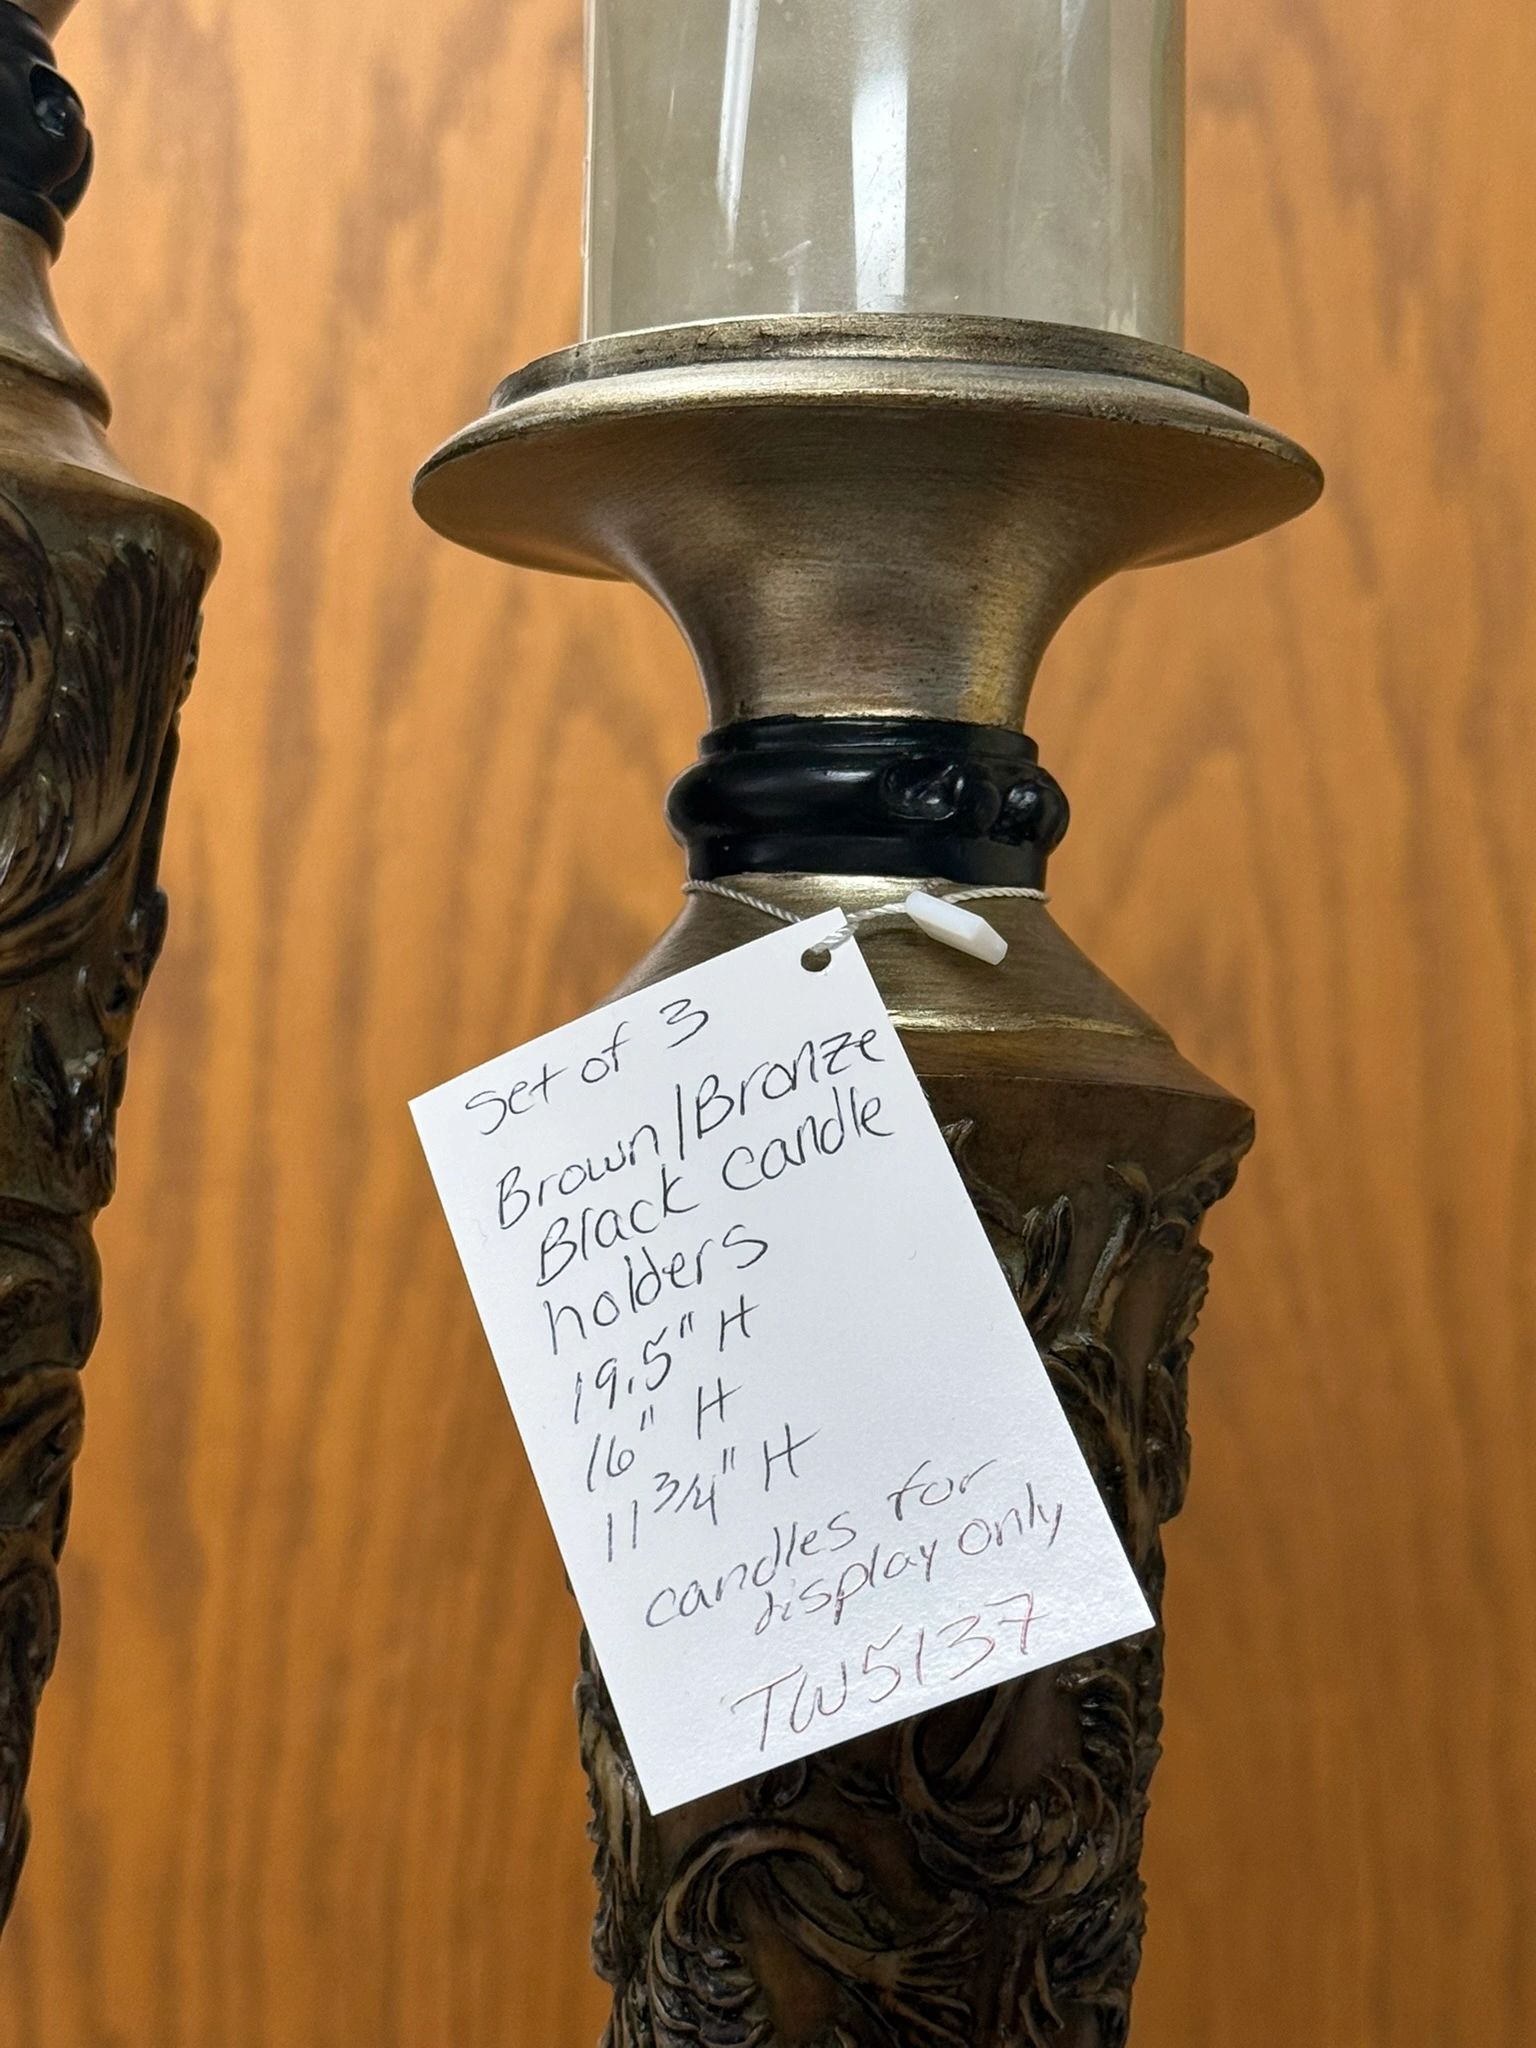 Set of 3
Brown/Bronze
Black candle
holders
19.5" H
16" H
11 3/4" H
candles for
display only
TW5137